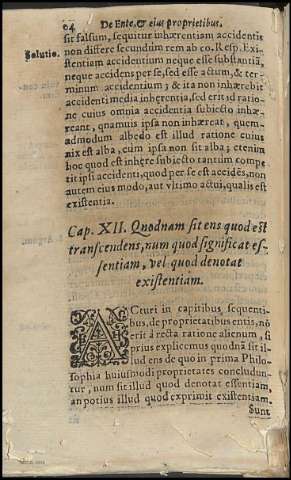 64 De Ente, & eius proprietibus.
sit falsum, sequitur inhærentiam accidentis
Solutio. non differe secundum rem ab eo. Resp. Exi-
stentiam accidentium neque esse substantiã,
neque accidens per se, sed esse actum, & ter-
minum accidentium; & ita non inhærebit
accidenti media inhęrentia, sed erit id ratio-
ne cuius omnia accidentia subiecto inhæ-
reant, quamuis ipsa non inhæreat, quem-
admodum albedo est illud ratione cuius
nix est alba, cum ipsa non sit alba; etenim
hoc quod est inhęre subiecto tantum compe-
tit ipsi accidenti, quod per se est accidẽs, non
autem eius modo, aut vltimo actui, qualis est
existentia.
Cap. XII. Quodnam sit ens quod est
transcendens, num quod significat es-
sentiam, vel quod denotat
existentiam.
ACturi in capitibus sequenti-
bus, de proprietatibus entis, nõ
erit à recta ratione alienum, si
prius explicemus quodnã sit il-
lud ens de quo in prima Philo-
sophia huiusmodi proprietates concludun-
tur, num sit illud quod denotat essentiam,
an potius illud quod exprimit existentiam.
Sunt